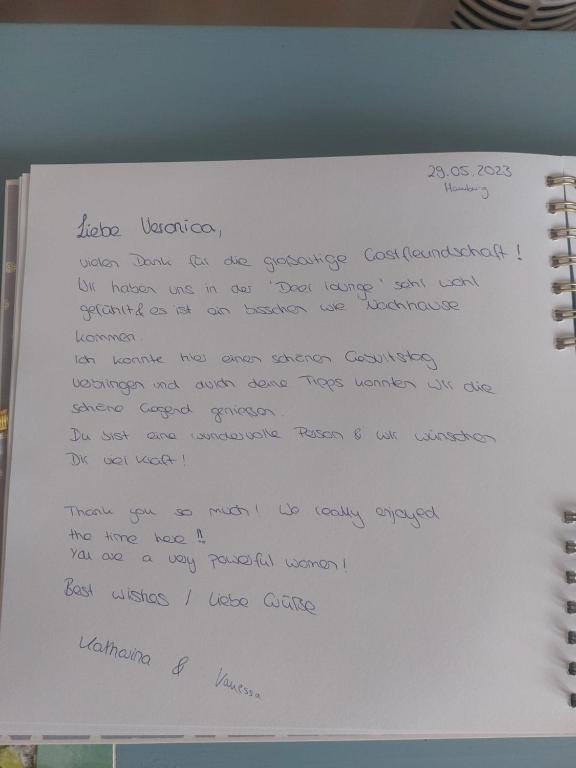 29.05.2023
Hamburg
Liebe Veronica,
vielen Dank für die großartige Gastfreundschaft!
Wir haben uns in der 'Deer lounge' sehr wohl
gefühlt & es ist ein bisschen wie Nachhause
kommen.
Ich konnte hier einen schönen Geburtstag
verbringen und durch deine Tipps konnten wir die
schöne Gegend geniessen.
Du bist eine wundervolle Person & wir wünschen
Dir viel Kraft!
Thank you so much! We really enjoyed
the time here!!
You are a very powerful women!
Best wishes / Liebe Grüße
Katharina & Vanessa